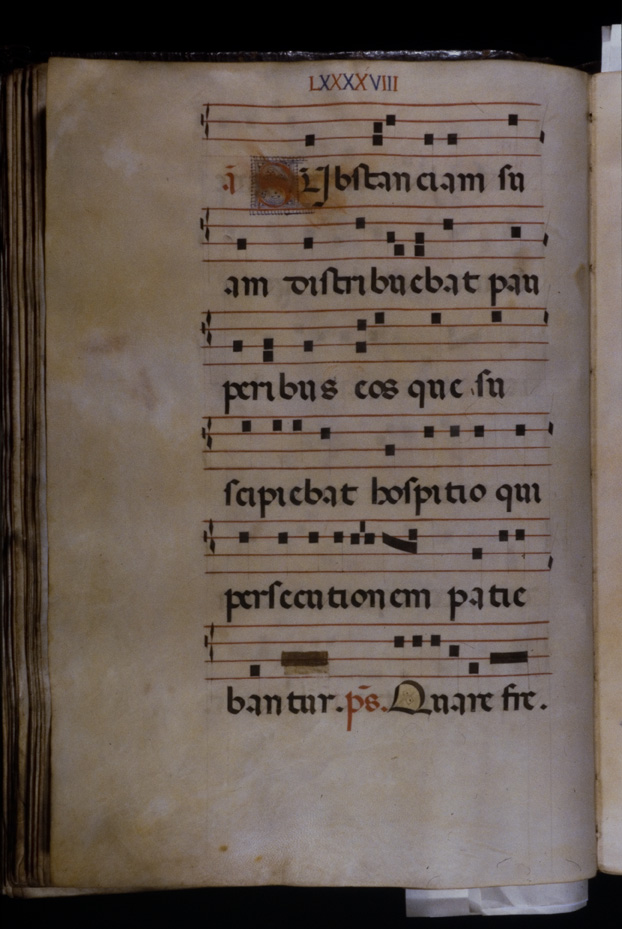 LXXXXVIII
ā SUbstanciam su
am distribuebat pau
peribus eos que su
scipiebat hospitio qui
persecutionem patie
bantur. p̄s. Quare fre.